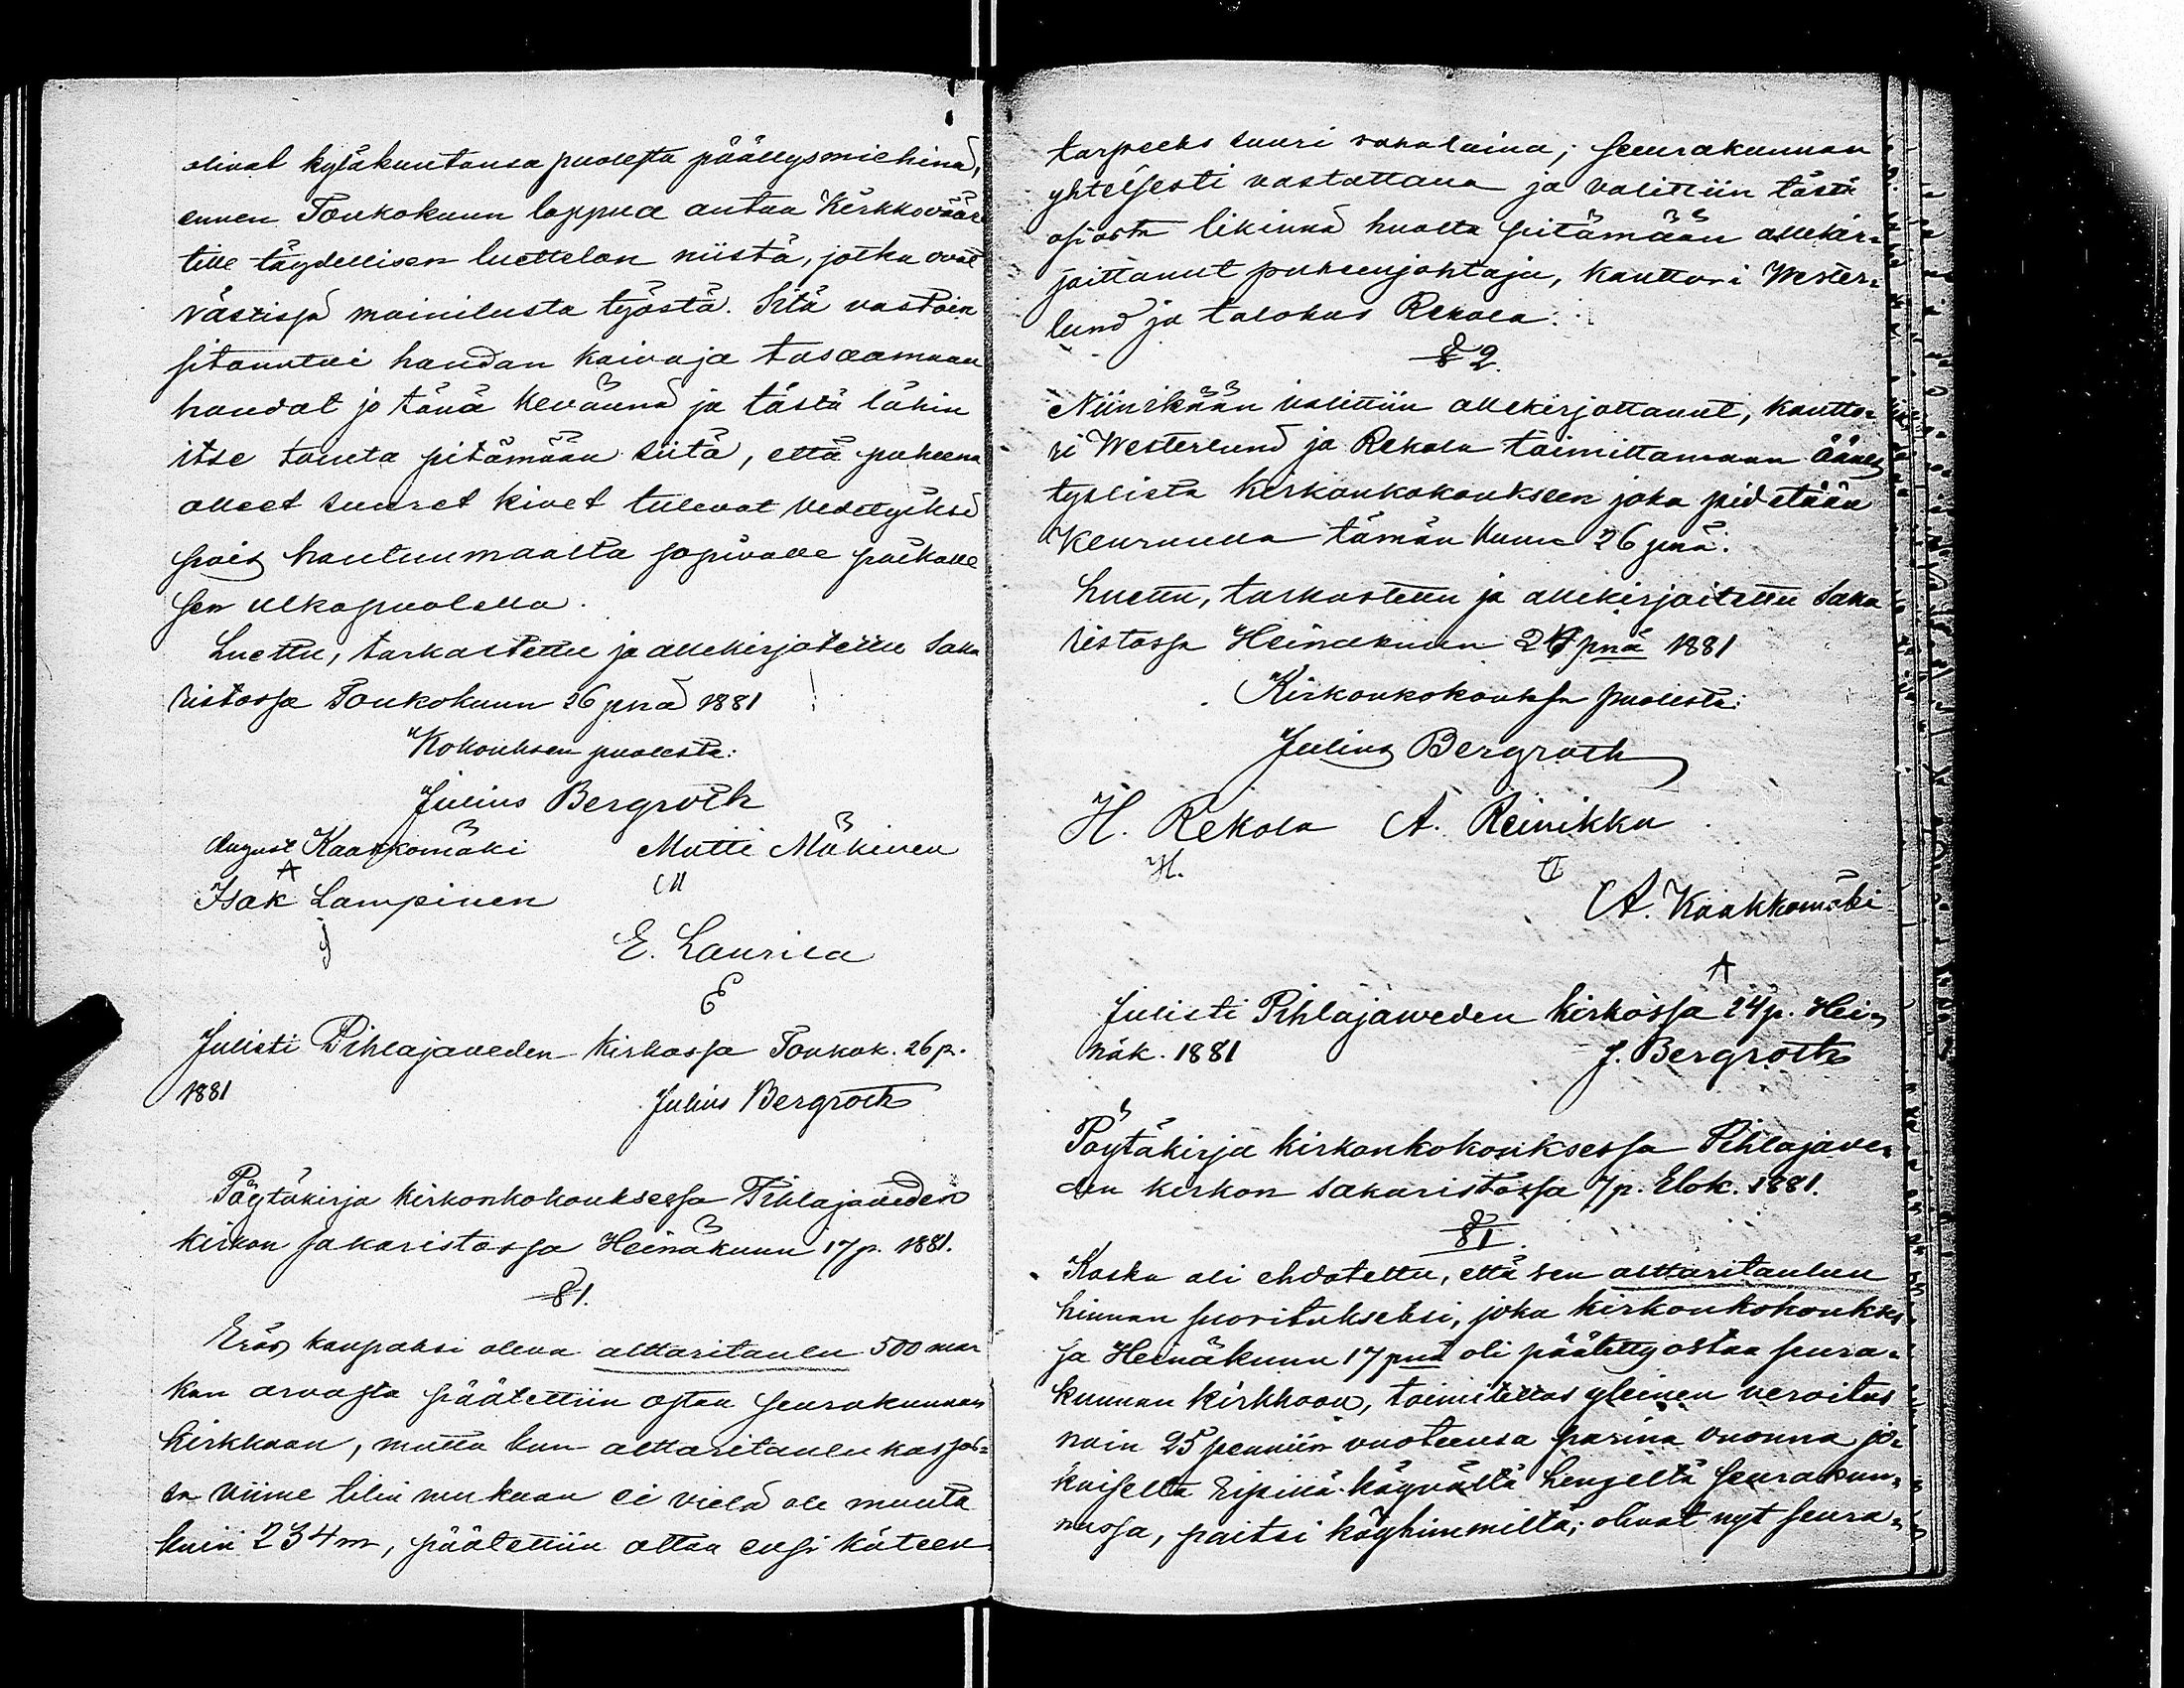 olivat kyläkuntansa puolesta päällysmiehinä,
ennen Toukokuun loppua antaa Kirkkoväär
tille täydellisen luettelon niistä, jotka ovat
rästissä mainitusta työstä. Sitä vastoin
sitountui haudan kaivaja tasaamaan
haudat jo tänä keväänä ja tästä lähin
itse  pitämään siitä, että puheena
olleet suuret kivet tulevat vedetyiksi
pois hautuumaalta sopivalle paikalle
sen ulkopuolella.
Luettu, tarkastettu ja allekirjotettu Saka
ristossa Toukokuun 26 pnä 1881
Kokouksen puolesta:
Julius Bergroth
August Kaakkomäki Matti Mäkinen
A M
Isak Lampinen
J E. Laurila
E
Julisti Pihlajaveden Kirkossa Toukok. 26 p.
1881 Julius Bergroth
Pöytäkirja kirkonkokouksessa Pihlajaveden
kirkon sakaristossa Heinäkuun 17 p. 1881.
§1.
Eräs kaupaksi oleva alttaritaulu 500 mar
kan arvosta päätettiin ostaa seurakunnan
kirkkoon, mutta kun alttaritaulu kassas=
sa viime tilin mukaan ei vielä ole muuta
kuin 234 m, päätettiin ottaa ensi käteen
tarpeeks suuri rahalaina; seurakunnan
yhteisesti vastattava ja valittiin tästä
asiasta likinnä huolta pitämään allekir=
joittanut puheenjohtaja, kanttori Wester=
lund ja talokas Rekola.
§ 2.
Niinikään valittiin allekirjottanut, kantto=
ri Westerlund ja Rekola toimittamaan äänes
tyslista kirkonkokoukseen joka pidetään
Keuruulla tämän kuun 26 pnä.
Luettu, tarkastettu ja allekirjoitettu Saka
ristossa Heinäkuun 24 pnä 1881
Kirkonkokouksen puolesta:
Julius Bergroth
H. Rekola A. Reinikka
H. A
A. Kaakkomäki
A
Julisti Pihlajaweden kirkossa 24 p. Hei=
näk. 1881 J. Bergroth
Pöytäkirja kirkonkokouksessa Pihlajave=
den kirkon sakaristossa 7 p. Elok. 1881.
§1.
Koska oli ehdotettu, että sen alttaritaulun
hinnan suoritukseksi, joka kirkonkokoukses
sa Heinäkuun 17 pnä oli päätetty ostaa seura=
kunnan kirkkoon, toimitettas yleinen veroitus
noin 25 penniin vuoteensa parina vuonna jo=
kaiselta Ripillä-käyvältä hengeltä seurakun=
nassa, paitsi köyhimmiltä; olivat nyt seura=